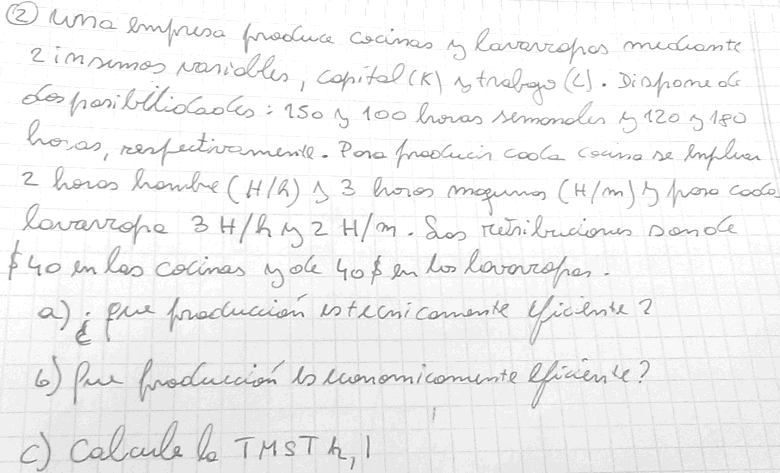 ② una empresa produce cocinas y lavarropas mediante
2 insumos variables, capital (K) y trabajo (L). Dispone de
dos posibilidades: 150 y 100 horas semanales y 120 y 180
horas, respectivamente. Para producir cada cocina se emplean
2 horas hombre (H/h) y 3 horas maquinas (H/m) y para cada
lavarropa 3 H/h y 2 H/m. Las retribuciones son de
$40 en las cocinas y de 40$ en los lavarropas.
a) ¿que producción es tecnicamente eficiente?
b) Que producción es economicamente eficiente?
c) Calcule la TMST k,l